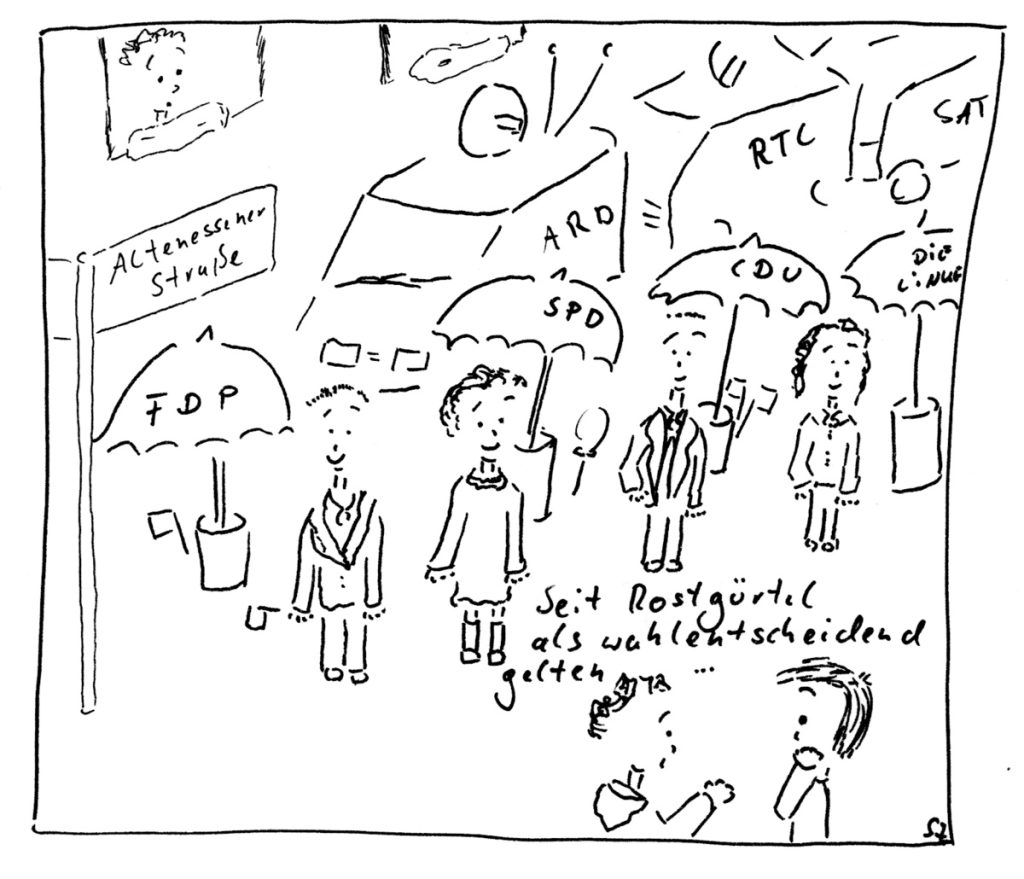 ALtenessener
Straße
ARD
RTL
SAT
FDP
SPD
CDU
DiE
LiNKE
Seit Rostgürtel
als wahlentscheidend
gelten ...
SZ